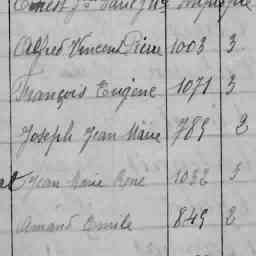 Ernest
Alfred Vincent Pierre 1003 3
François Eugène 1071 3
Joseph Jean Marie 789 2
Jean Marie René 1032 3
Amand Emile 849 2